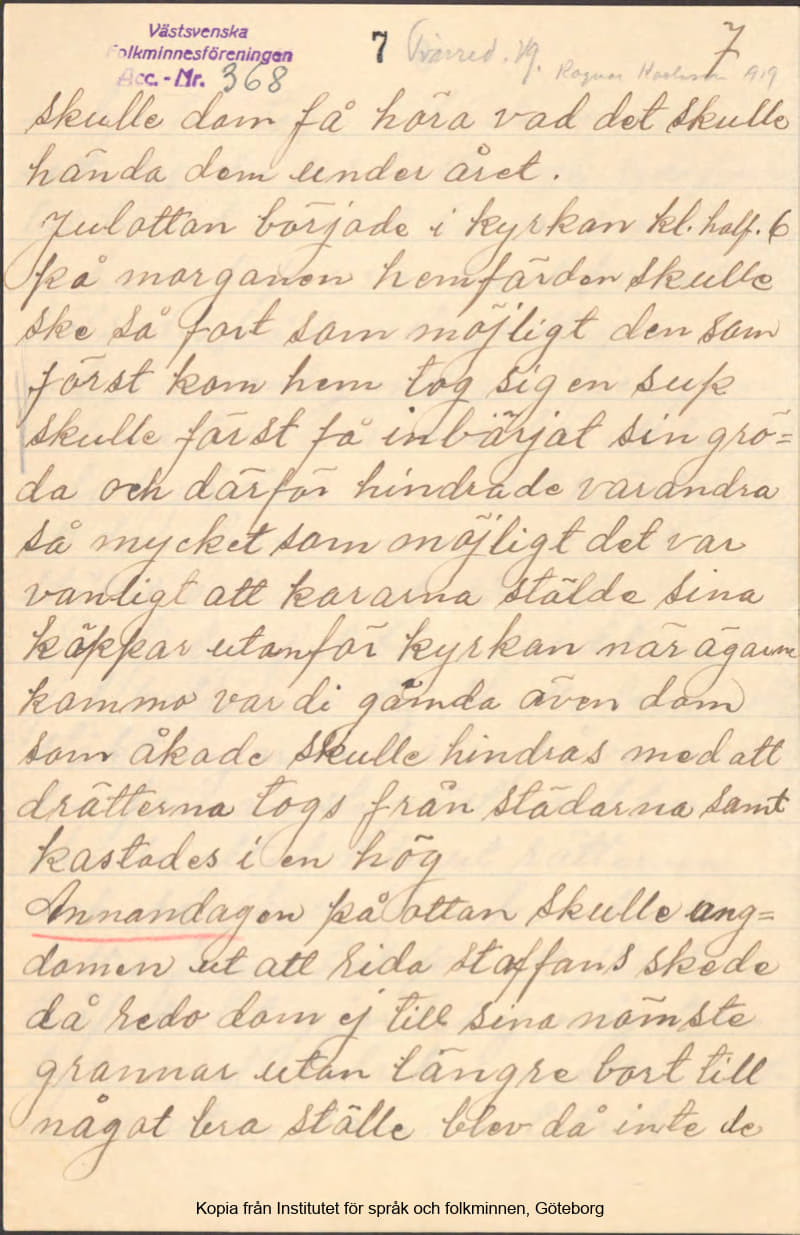 Västsvenska
Folkminnesföreningen
Acc.-Nr. 368
7 Tvärred. Vg. 7
Ragnar 1919
skulle dom få höra vad det skulle
hända dem under året.
Julottan började i kyrkan kl. half. 6
på morganen hemfärden skulle
ske så fort som möjligt den som
först kom hem tog sig en sup
skulle först få inbärjat sin grö=
da och därför hindrade varandra
så mycket som möjligt det var
vanligt att kararna stälde sina
käppar utanför kyrkan när ägarna
kommo var di gämda även dom
som åkade skulle hindras med att
drätterna togs från städarna samt
kastades i en hög
Annandagen på ottan skulle ung=
domen ut att rida staffans skede
då redo dom ej till sina nämste
grannar utan längre bort till
något bra ställe blev då inte de
Kopia från Institutet för språk och folkminnen, Göteborg